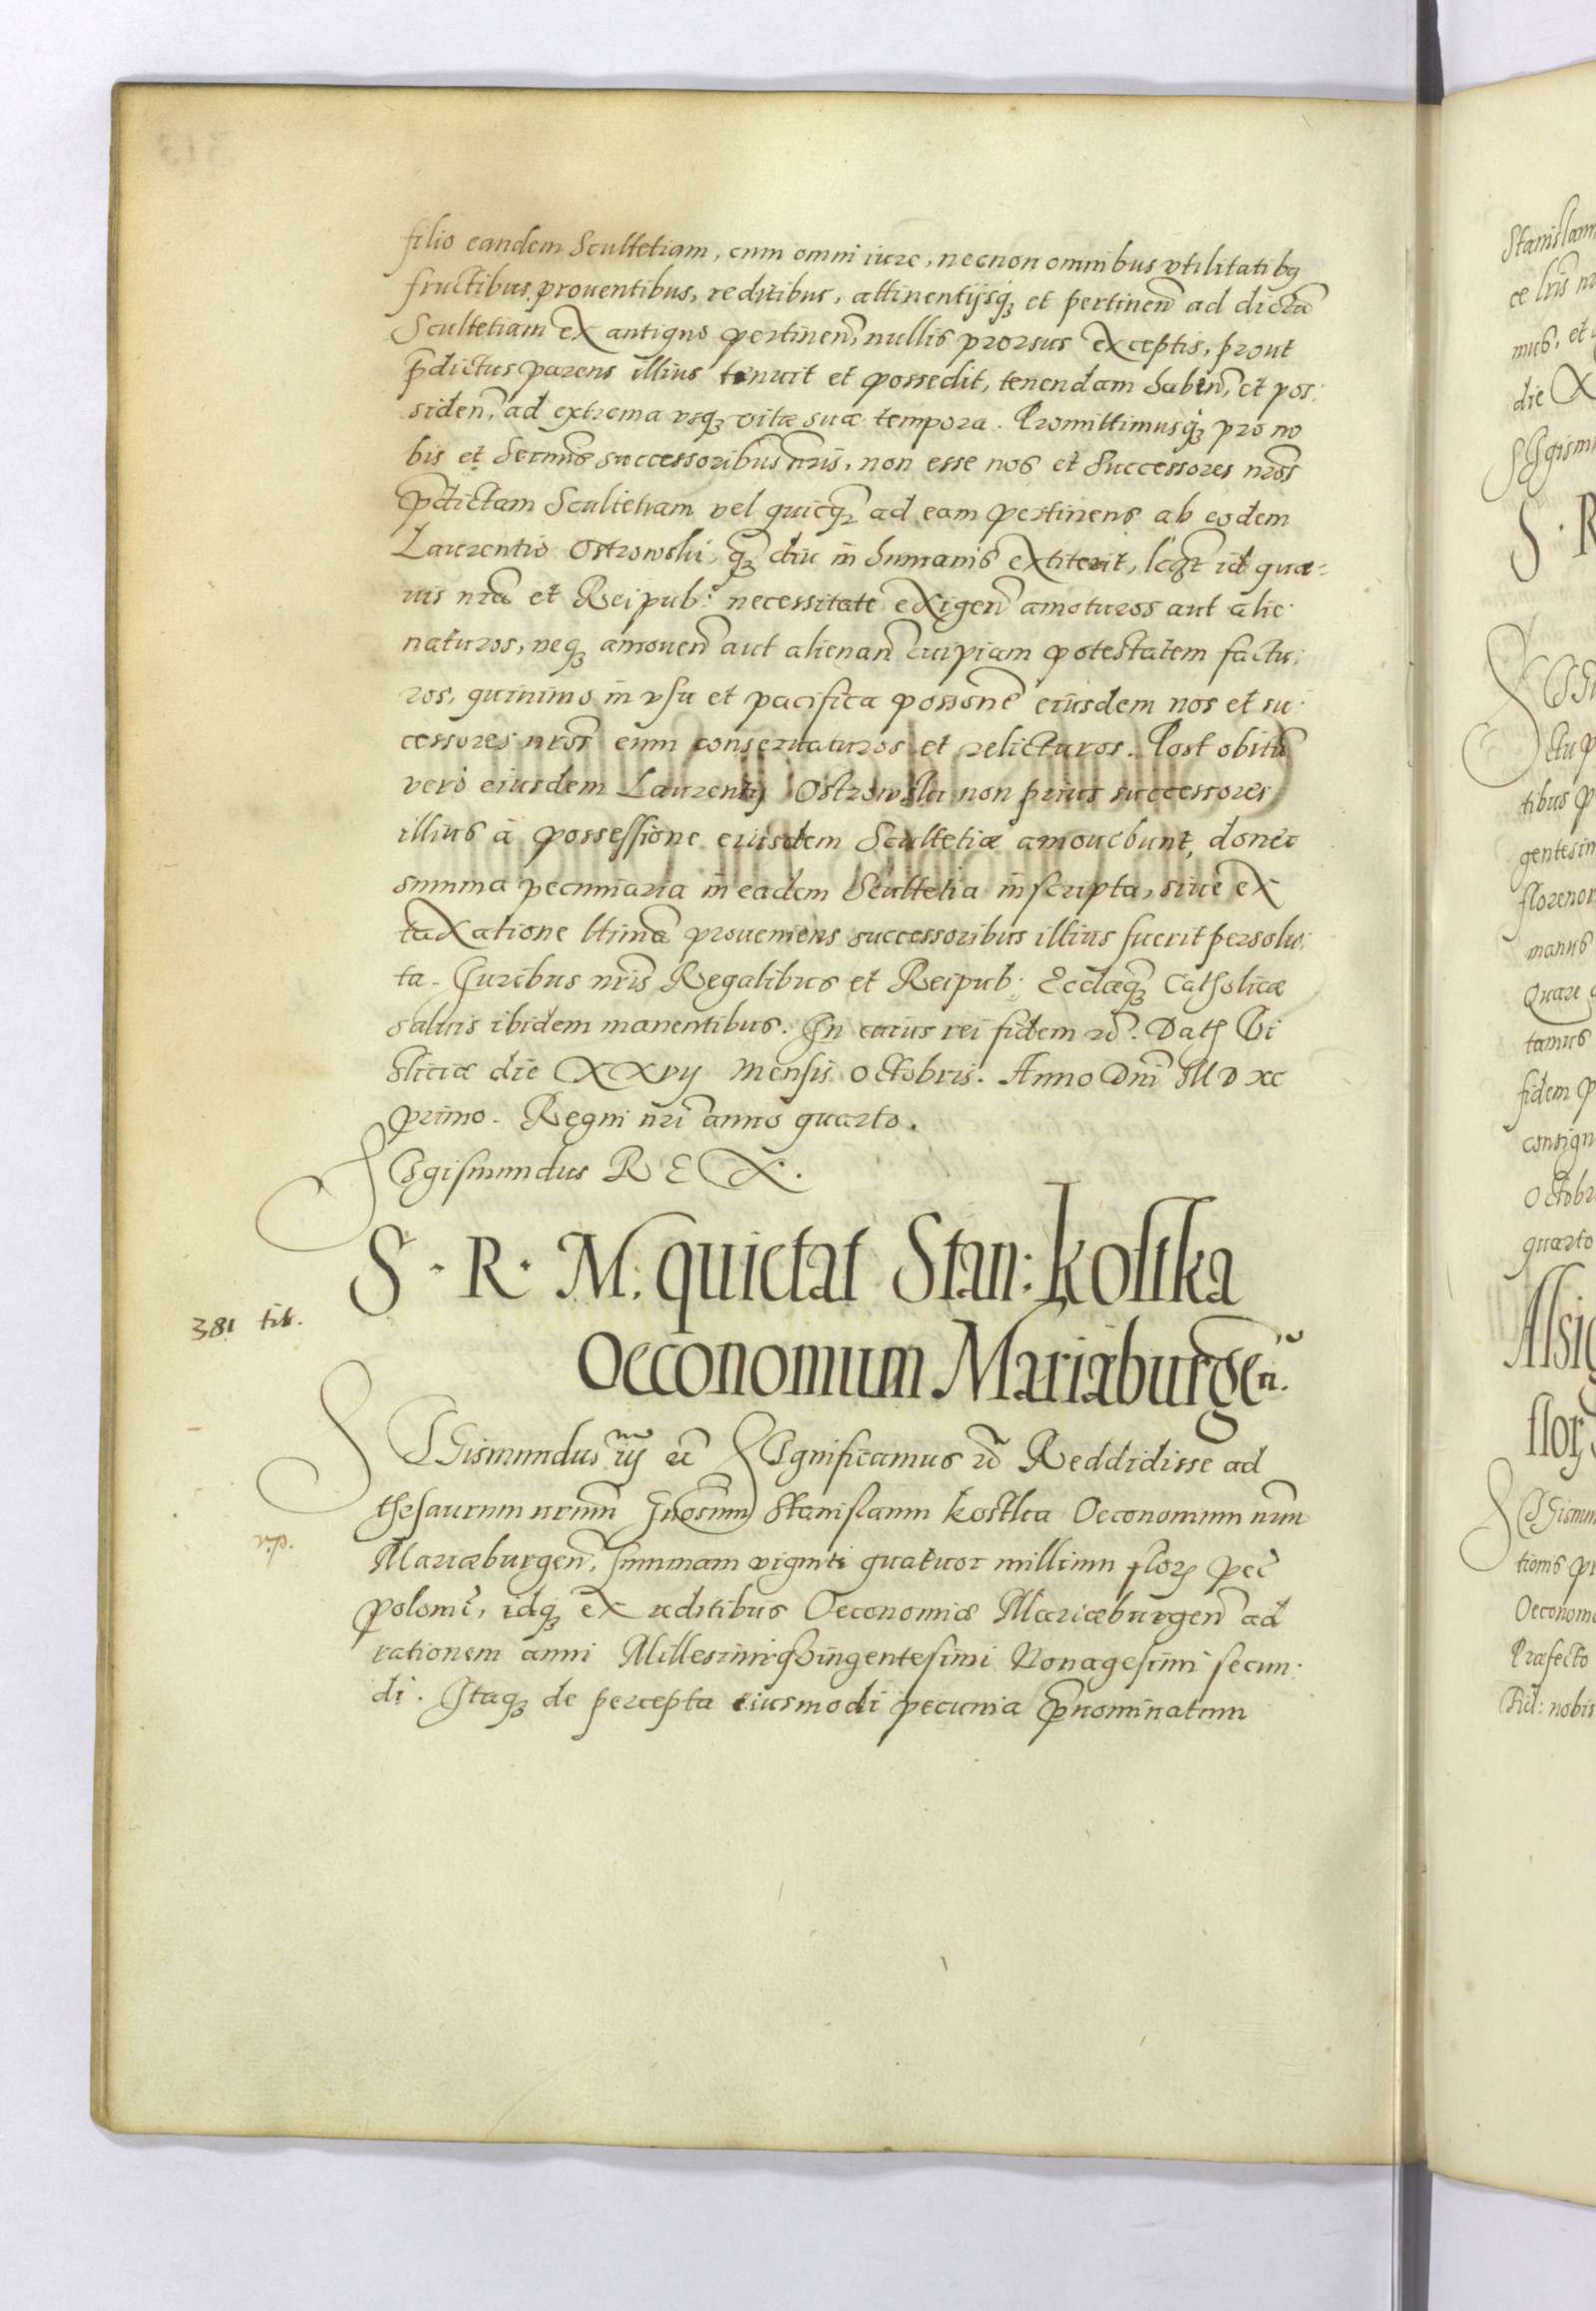 filio eandem Scultetiam, cum omni iure, necnon omnibus vtilitatibꝫ
fructibus, prouentibus, reditibus, attinentijsqꝫ et pertinen̄ ad dictā
Scultetiam ex antiquo pertinen̄, nullis prorsus exceptis, prout
p̄dictus parens illius tenuit et possedit, tenendam haben̄, et pos:
siden̄, ad extrema vsqꝫ vitæ suæ tempora. Promittimusqꝫ pro no
bis et Sermīs successoribus nr̄is, non esse nos et Successores nr̄os
p̄dictam Scultetiam vel quicqꝫ ad eam pertinens ab eodem
Laurentio Ostrowski, qꝫ diu in humanis extiterit, id quæ=
uis nr̄a et Reipub: necessitate exigen̄ amoturos aut alie:
naturos, neqꝫ amouen̄ aut alienan̄ cuipiam potestatem factu:
ros, quinimo in vsu et pacifica possone eiusdem nos et su:
cessores nr̄os eum conseruaturos et relicturos. Post obitū
vero eiusdem Laurentij Ostrowski non prius successores
illius à possessione eiusdem Scultetiæ amouebunt, donec
summa pecuniaria in eadem Scultetia inscripta, siue ex
taxatione ltima proueniens successoribus illius fuerit persolu:
ta. Juribus nr̄is Regalibus et Reipub: Ecclæqꝫ Catholicæ
saluis ibidem manentibus. In cuius rei fidem &c. Datꝫ Vi
sliciæ die XXVij mensis Octobris. Anno Dn̄i M D XC
primo. Regni nr̄i anno quarto.
Sigismundus R E X.
S. R. M. quietat Stan: Kostka
Oeconomum Mariæburgen̄.
381 tit.
SIGismundus iij &c Significamus &c Reddidisse ad
thesaurum nrum̄ Gn̄osum Stanislaum Kostka Oeconomum nrum̄
v.p.
Mariæburgen̄, summam viginti quatuor millium florꝫ pec̄
polonī, idqꝫ ex reditibus Oeconomiæ Mariæburgen̄ ad
rationem anni Millesimi qūingentesimi Nonagesimi secun:
di. Itaqꝫ de percepta eiusmodi pecunia p̄nominatum